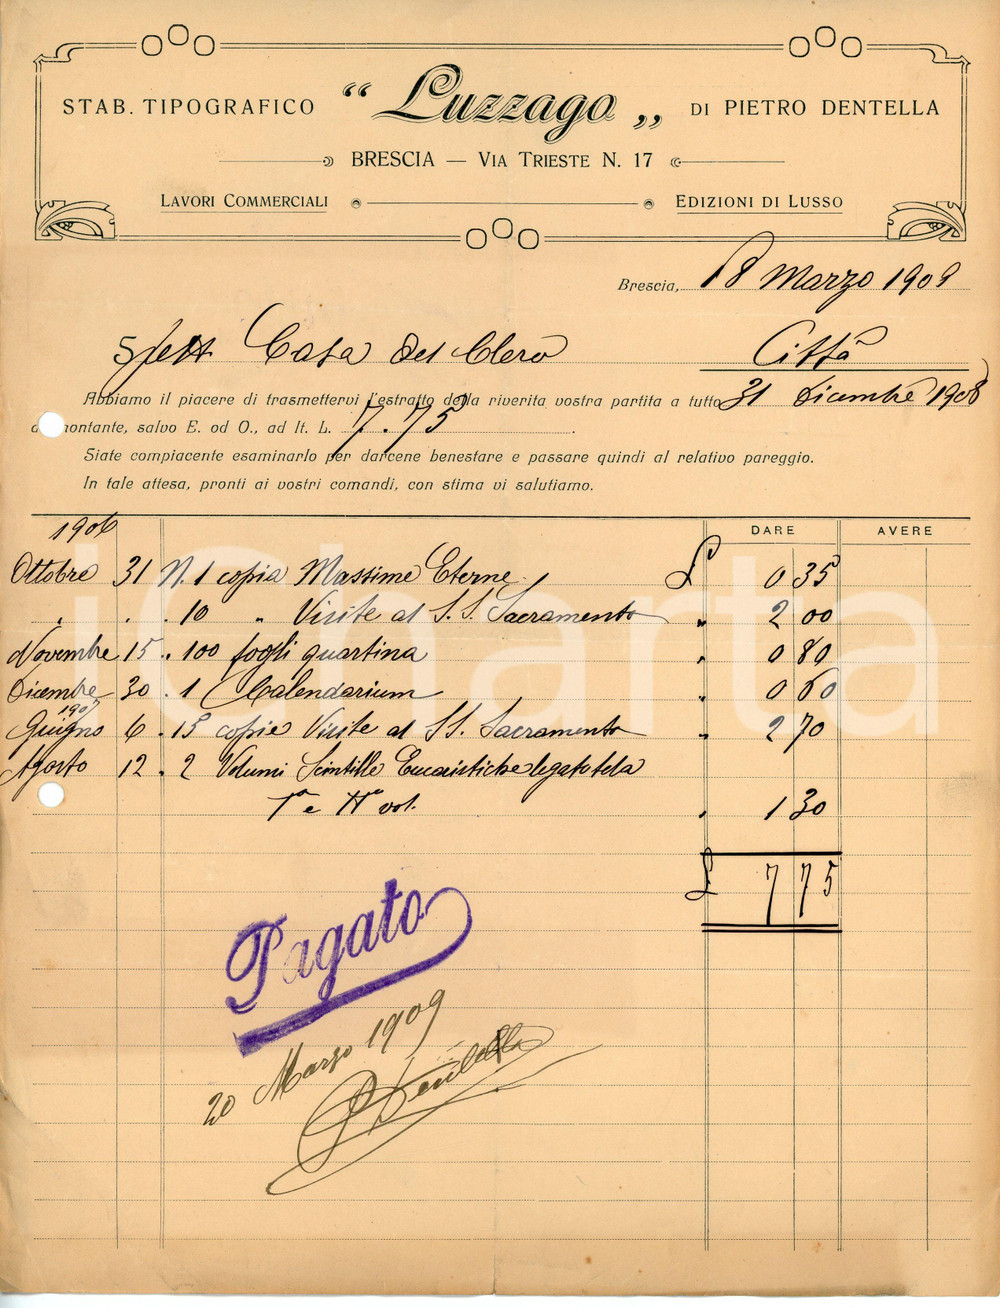 STAB. TIPOGRAFICO “ Luzzago „ DI PIETRO DENTELLA
BRESCIA — VIA TRIESTE N. 17
LAVORI COMMERCIALI EDIZIONI DI LUSSO
Brescia, 18 Marzo 1909
Spett Casa del Clero Città
Abbiamo il piacere di trasmettervi l'estratto della riverita vostra partita a tutto 31 Dicembre 1908
montante, salvo E. od O., ad It. L. 7.75
Siate compiacente esaminarlo per darcene benestare e passare quindi al relativo pareggio.
In tale attesa, pronti ai vostri comandi, con stima vi salutiamo.
DARE AVERE
1906
Ottobre 31 N. 1 copia Massime Eterne £ 0 35
" . . 10 " Visite al S. S. Sacramento " 2 00
Novembre 15 . 100 fogli quartina " 0 80
Dicembre 30 . 1 Calendarium " 0 60
1907
Giugno 6 . 15 copie Visite al SS. Sacramento " 2 70
Agosto 12 . 2 Volumi Scintille Eucaristiche legato tela
I° e II° vol. " 1 30
£ 7 75
Pagato
20 Marzo 1909
P Dentella
iCharta